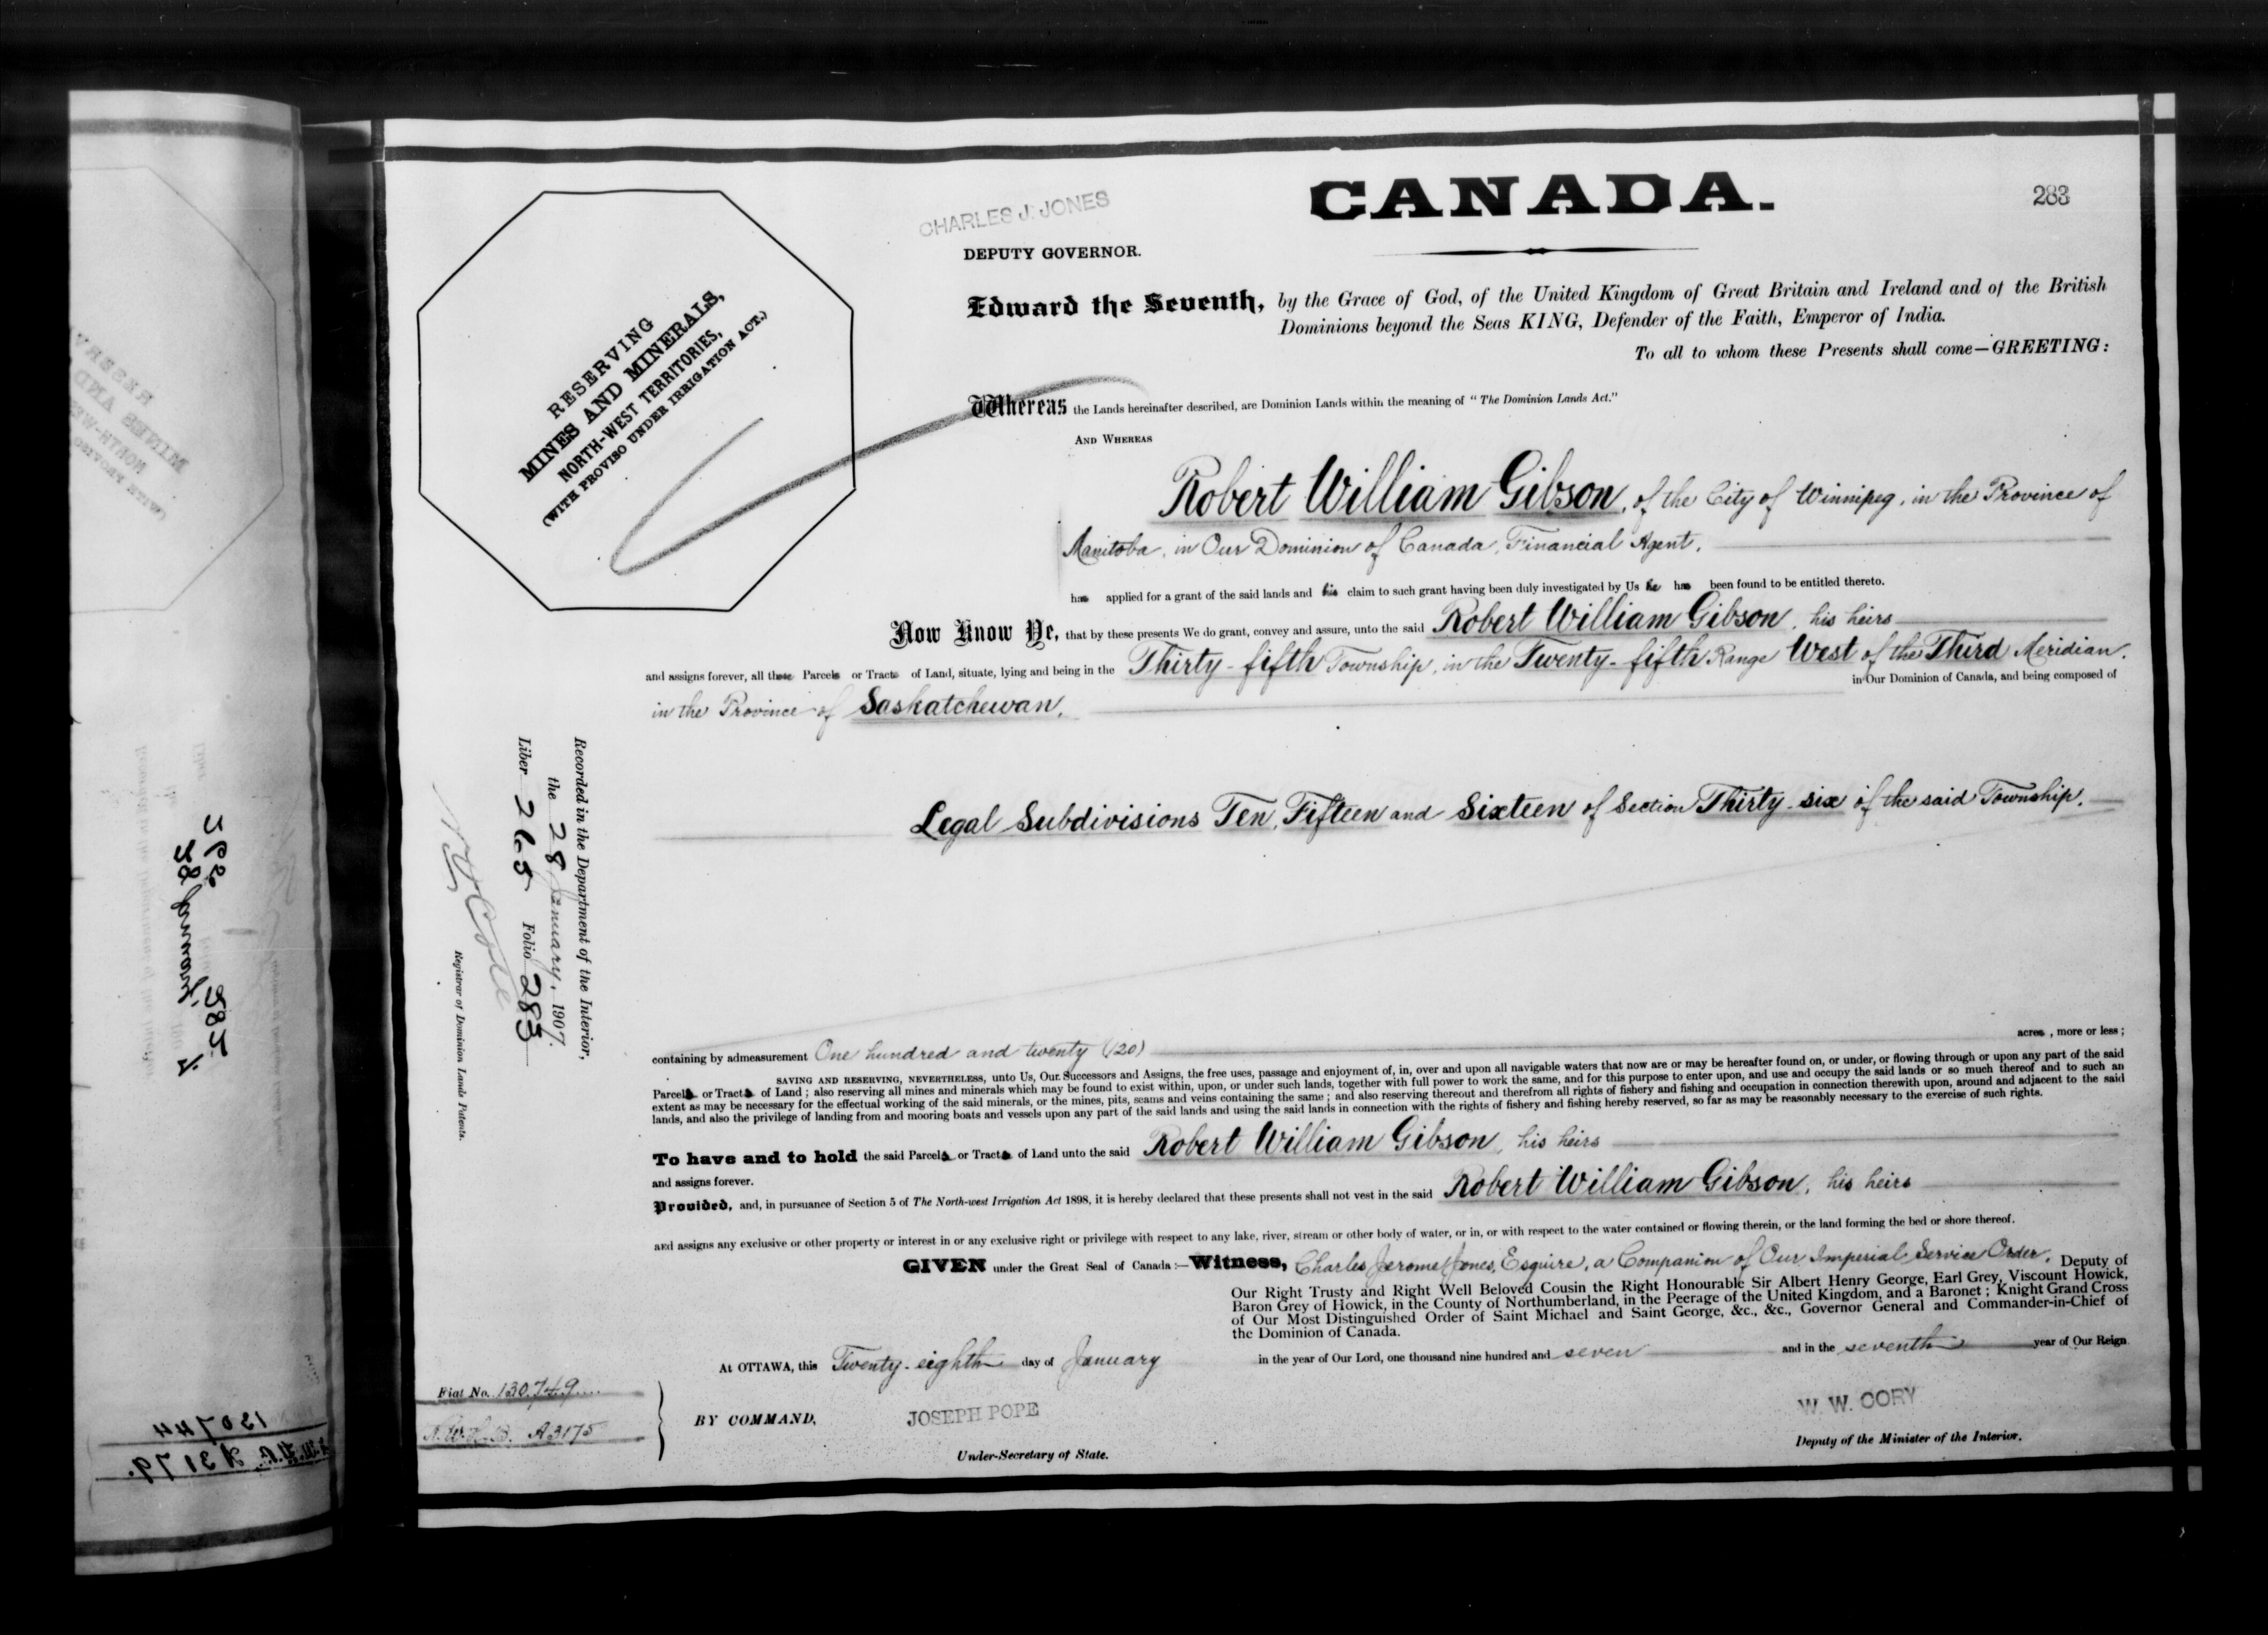 CANADA.
283
CHARLES J. JONES
DEPUTY GOVERNOR.
RESERVING
MINES AND MINERALS,
NORTH-WEST TERRITORIES,
(WITH PROVISO UNDER IRRIGATION ACT.)
Edward the Seventh, by the Grace of God, of the United Kingdom of Great Britain and Ireland and of the British
Dominions beyond the Seas KING, Defender of the Faith, Emperor of India.
To all to whom these Presents shall come—GREETING:
Whereas the Lands hereinafter described, are Dominion Lands within the meaning of "The Dominion Lands Act."
AND WHEREAS
Robert William Gibson, of the City of Winnipeg, in the Province of
Manitoba, in Our Dominion of Canada, Financial Agent,
has applied for a grant of the said lands and his claim to such grant having been duly investigated by Us he has been found to be entitled thereto.
Now Know Ye, that by these presents We do grant, convey and assure, unto the said Robert William Gibson, his heirs
and assigns forever, all those Parcels or Tracts of Land, situate, lying and being in the Thirty-fifth Township, in the Twenty-fifth Range West of the Third Meridian,
in the Province of Saskatchewan, in Our Dominion of Canada, and being composed of
Legal Subdivisions Ten, Fifteen and Sixteen of Section Thirty-six of the said Township,
Recorded in the Department of the Interior,
the 28 January, 1907.
Liber 265 Folio 283
Registrar of Dominion Lands Patents.
containing by admeasurement One hundred and twenty (120) acres, more or less;
SAVING AND RESERVING, NEVERTHELESS, unto Us, Our Successors and Assigns, the free uses, passage and enjoyment of, in, over and upon all navigable waters that now are or may be hereafter found on, or under, or flowing through or upon any part of the said
Parcels or Tracts of Land; also reserving all mines and minerals which may be found to exist within, upon, or under such lands, together with full power to work the same, and for this purpose to enter upon, and use and occupy the said lands or so much thereof and to such an
extent as may be necessary for the effectual working of the said minerals, or the mines, pits, seams and veins containing the same; and also reserving thereout and therefrom all rights of fishery and fishing and occupation in connection therewith upon, around and adjacent to the said
lands, and also the privilege of landing from and mooring boats and vessels upon any part of the said lands and using the said lands in connection with the rights of fishery and fishing hereby reserved, so far as may be reasonably necessary to the exercise of such rights.
To have and to hold the said Parcels or Tracts of Land unto the said Robert William Gibson, his heirs
and assigns forever.
Provided, and, in pursuance of Section 5 of The North-west Irrigation Act 1898, it is hereby declared that these presents shall not vest in the said Robert William Gibson, his heirs
and assigns any exclusive or other property or interest in or any exclusive right or privilege with respect to any lake, river, stream or other body of water, or in, or with respect to the water contained or flowing therein, or the land forming the bed or shore thereof.
GIVEN under the Great Seal of Canada:—Witness, Charles Jerome Jones, Esquire, a Companion of Our Imperial Service Order, Deputy of
Our Right Trusty and Right Well Beloved Cousin the Right Honourable Sir Albert Henry George, Earl Grey, Viscount Howick,
Baron Grey of Howick, in the County of Northumberland, in the Peerage of the United Kingdom, and a Baronet; Knight Grand Cross
of Our Most Distinguished Order of Saint Michael and Saint George, &c., &c., Governor General and Commander-in-Chief of
the Dominion of Canada.
At OTTAWA, this Twenty-eighth day of January in the year of Our Lord, one thousand nine hundred and seven and in the seventh year of Our Reign
Fiat No. 130749
A3175
BY COMMAND,
JOSEPH POPE
Under-Secretary of State.
W. W. CORY
Deputy of the Minister of the Interior.